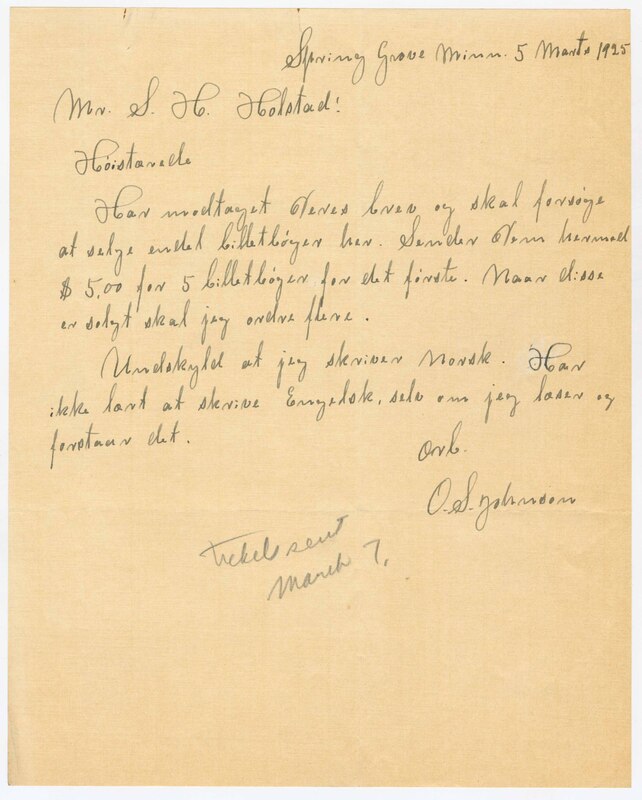 Spring Grove Minn. 5 Marts 1925
Mr. S. H. Holstad!
Høistærede
Har modtaget Deres brev og skal forsøge
at selge endel billetbøger her. Sender Dem hermed
$ 5,00 for 5 billetbøger for det første. Naar disse
er solgt skal jeg ordre flere.
Undskyld at jeg skriver Norsk. Har
ikke lært at skrive Engelsk, selv om jeg læser og
forstaar det.
Ærb.
O. S. Johnson
Tickets sent
March 7,